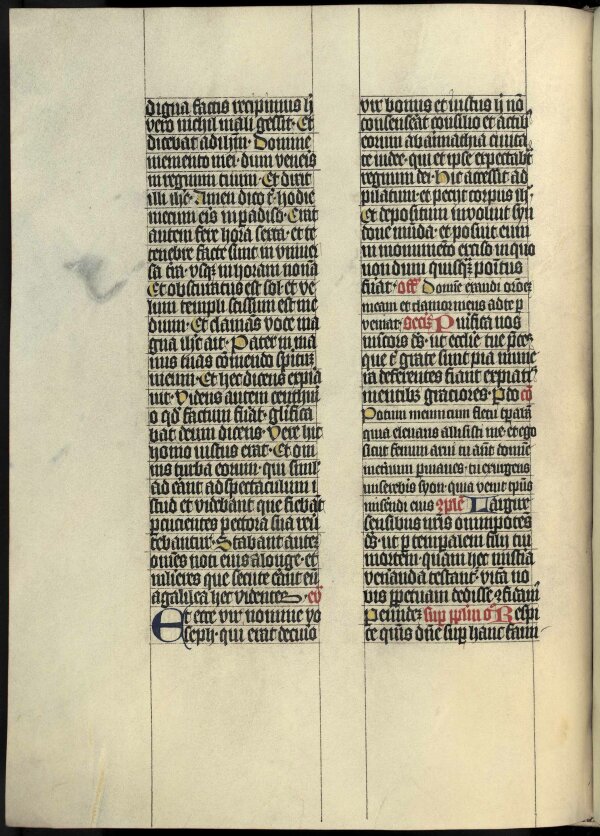 digna factis recipimus hic
vero nichil mali gessit. Et
dicebat ad ihm. Domine
memento mei. dum veneis
in regnum tuum. Et dixit
illi ihc. Amen dico t. hodie
mecum eis in padiso. Erat
autem fere hora sexta. et te
nebre facte sunt in univer
sa tra. usqz in horam nona
Et obscuratus est sol. et ve
lum templi scissum est me
dium. Et clamas voce ma
gna ihc ait. Pater in ma
nus tuas comendo spiritu
meum. Et hec dicens expira
uit. Videns autem centurii
o qd factum fuat. glifica
bat deum dicens. Vere hic
homo iustus erat. Et om
nis turba eorum. qui simul
ad erant ad spectaculum i
stud et videbant que fiebat
percucientes pectora sua reu
tebantur. Stabant autez
omes noti eius a longe. et
mlieres que secute erant eu
a galilea hec videntes. eu
Et ecce vir nomine yo
seph. qui erat decurio
vir bonus et iustus hic no
consenseat consilio et actib
eorum ab arimathia ciuita
te iudee. qui et ipse expectabat
regnum dei. Hic accessit ad
pilatum. et peciit corpus ihu.
Et depositum inuoluit syn
done muda. et posuit eum
in monumeto exciso in quo
non dum quisqz positus
fuat. off Domie exaudi oroez
meam et clamor meus ad te p
veniat. Secr Purifica nos
miscors ds. ut ecclie tue preces
que t grate sunt pia mune
ra deferentes fiant expiatis
mentibus graciores. P do co
Potum meum cum fletu tpaba
quia eleuans allisisti me. et ego
sicut fenum arui tu aut domie
ineternum pmanes. tu exurgens
misereberis syon. quia venit tpus
miserendi eius 2plc Largire
sensibus nris omnipotes
ds. ut p temporalem filii tui
mortem. quam hec misteria
veneranda testant. vita no
bis ppetuam dedisse confidam
Per eundez sup pplm or Respi
ce qus dne sup hanc famii